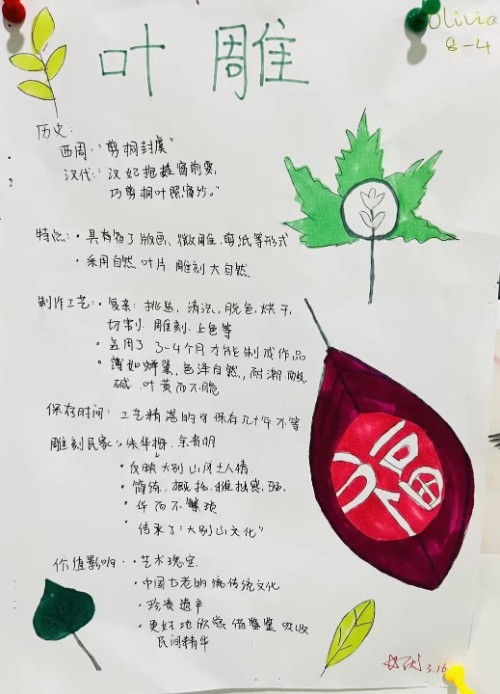 叶雕
Olivia
8-4
历史:
西周:"剪桐封虞"
汉代: 汉妃抱娃窗前耍,
巧剪桐叶照窗纱。"
特点: · 具有留了版画、微雕、剪纸等形式
· 采用自然叶片 雕刻大自然
制作工艺: · 复杂: 挑选, 清洗, 脱色, 烘干,
切割 雕刻 上色等
· 3-4个月才能制成作品
· 薄如蝉翼, 色泽自然, 耐潮 酸
碱 叶黄而不脆
保存时间: 工艺精湛的可保存几十年不等
雕刻民家:
· 反映大别山风土人情
· 简练, 概括
· 华而不繁琐
· 传承了"大别山文化"
价值影响: · 艺术瑰宝
· 中国古老的传统文化
· 珍贵遗产
· 更好地欣赏 借鉴 吸收
民间精华
福
3.16